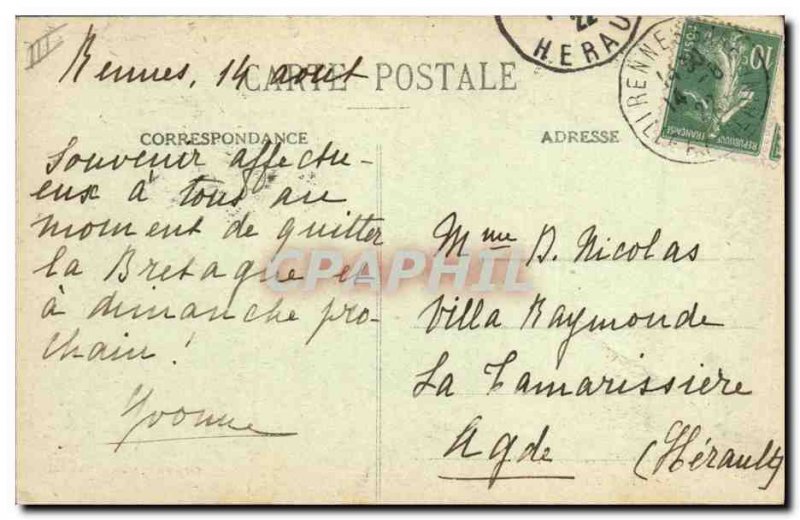 III
22
HERAU
Rennes, 14 aout
CARTE POSTALE
RENNES
ILLE
10
REPUBLIQUE FRANÇAISE
CORRESPONDANCE
Souvenir affectu-
eux à tous au
moment de quitter
la Bretagne et
à dimanche pro-
chain !
Yvonne
ADRESSE
Mme D. Nicolas
Villa Raymonde
La Tamarissière
Agde (Hérault)
CPAPHIL